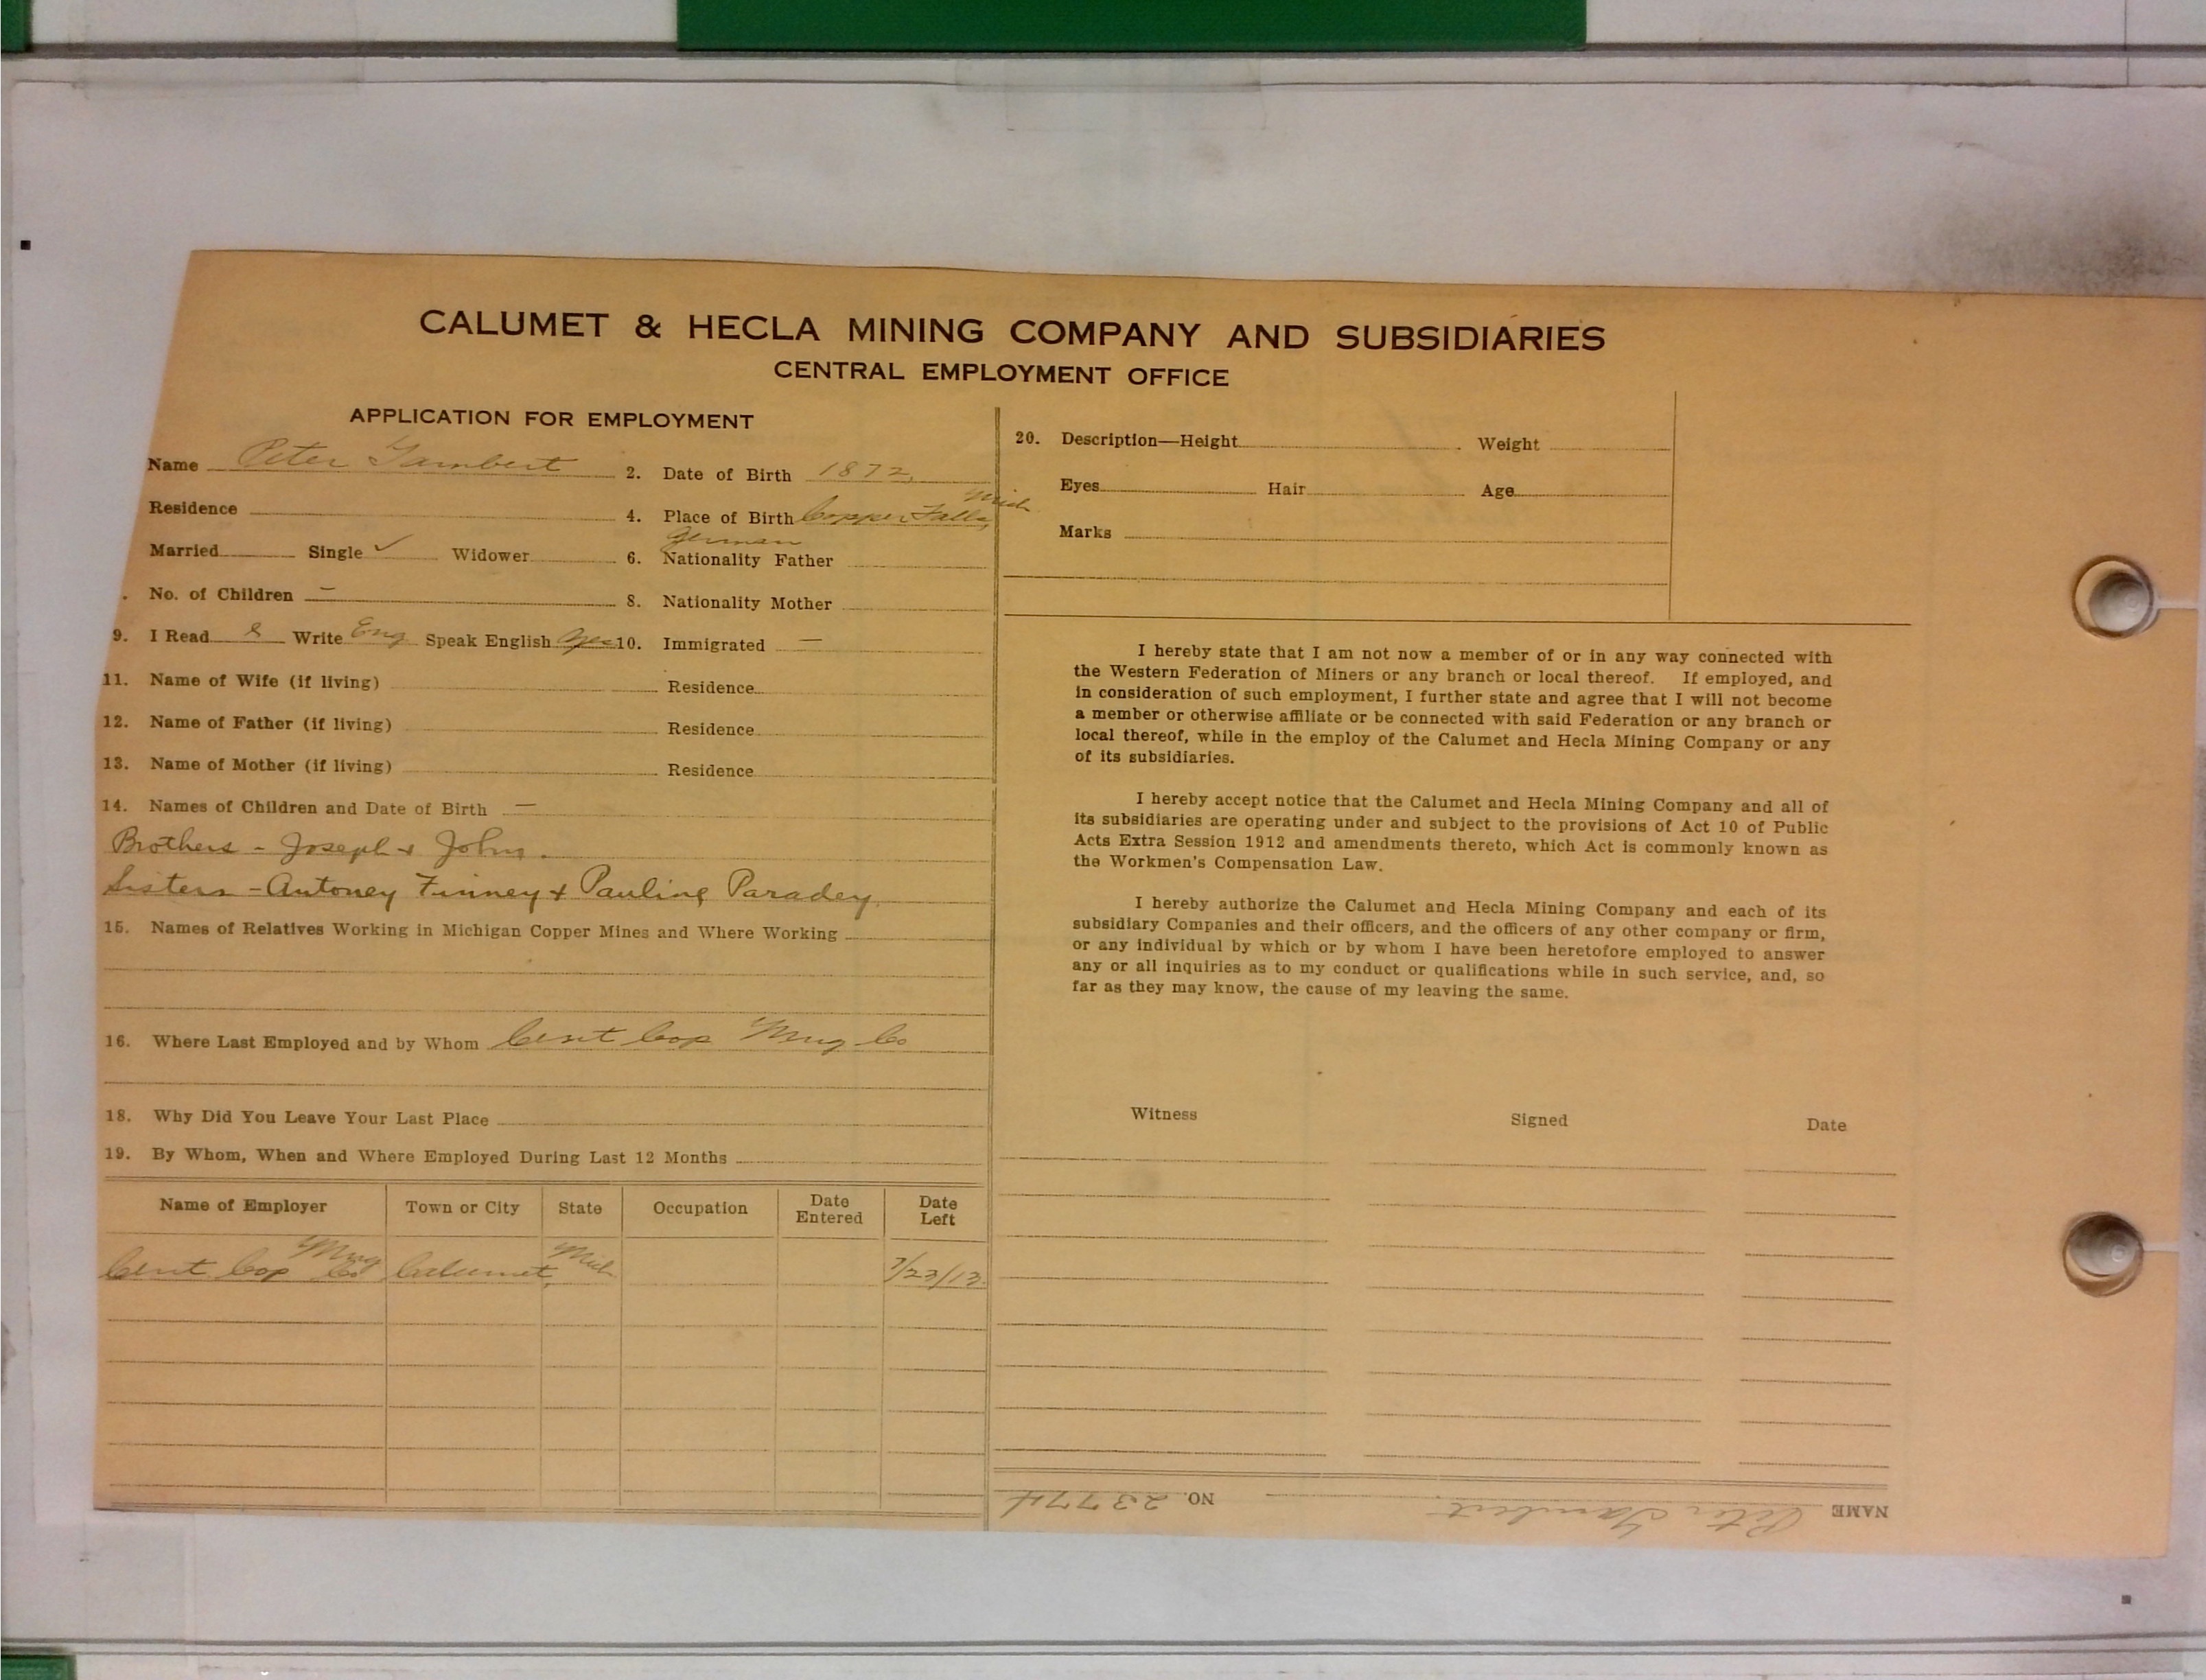 CALUMET & HECLA MINING COMPANY AND SUBSIDIARIES
CENTRAL EMPLOYMENT OFFICE
APPLICATION FOR EMPLOYMENT
Name Peter Gambert 2. Date of Birth 1872
Residence 4. Place of Birth Copper Falls, Mich
Married Single ✓ Widower 6. Nationality Father German
No. of Children — 8. Nationality Mother
9. I Read & Write Eng Speak English Yes 10. Immigrated —
11. Name of Wife (if living) Residence
12. Name of Father (if living) Residence
13. Name of Mother (if living) Residence
14. Names of Children and Date of Birth —
Brothers - Joseph & John.
Sisters - Antoney Finney & Pauline Paradey
15. Names of Relatives Working in Michigan Copper Mines and Where Working
16. Where Last Employed and by Whom Cent Cop Mng Co
18. Why Did You Leave Your Last Place
19. By Whom, When and Where Employed During Last 12 Months
Name of Employer Town or City State Occupation Date Entered Date Left
Cent Cop Mng Co Calumet, Mich 7/23/13
20. Description—Height Weight
Eyes Hair Age
Marks
I hereby state that I am not now a member of or in any way connected with
the Western Federation of Miners or any branch or local thereof. If employed, and
in consideration of such employment, I further state and agree that I will not become
a member or otherwise affiliate or be connected with said Federation or any branch or
local thereof, while in the employ of the Calumet and Hecla Mining Company or any
of its subsidiaries.
I hereby accept notice that the Calumet and Hecla Mining Company and all of
its subsidiaries are operating under and subject to the provisions of Act 10 of Public
Acts Extra Session 1912 and amendments thereto, which Act is commonly known as
the Workmen's Compensation Law.
I hereby authorize the Calumet and Hecla Mining Company and each of its
subsidiary Companies and their officers, and the officers of any other company or firm,
or any individual by which or by whom I have been heretofore employed to answer
any or all inquiries as to my conduct or qualifications while in such service, and, so
far as they may know, the cause of my leaving the same.
Witness Signed Date
NAME Peter Gambert. NO. 23774